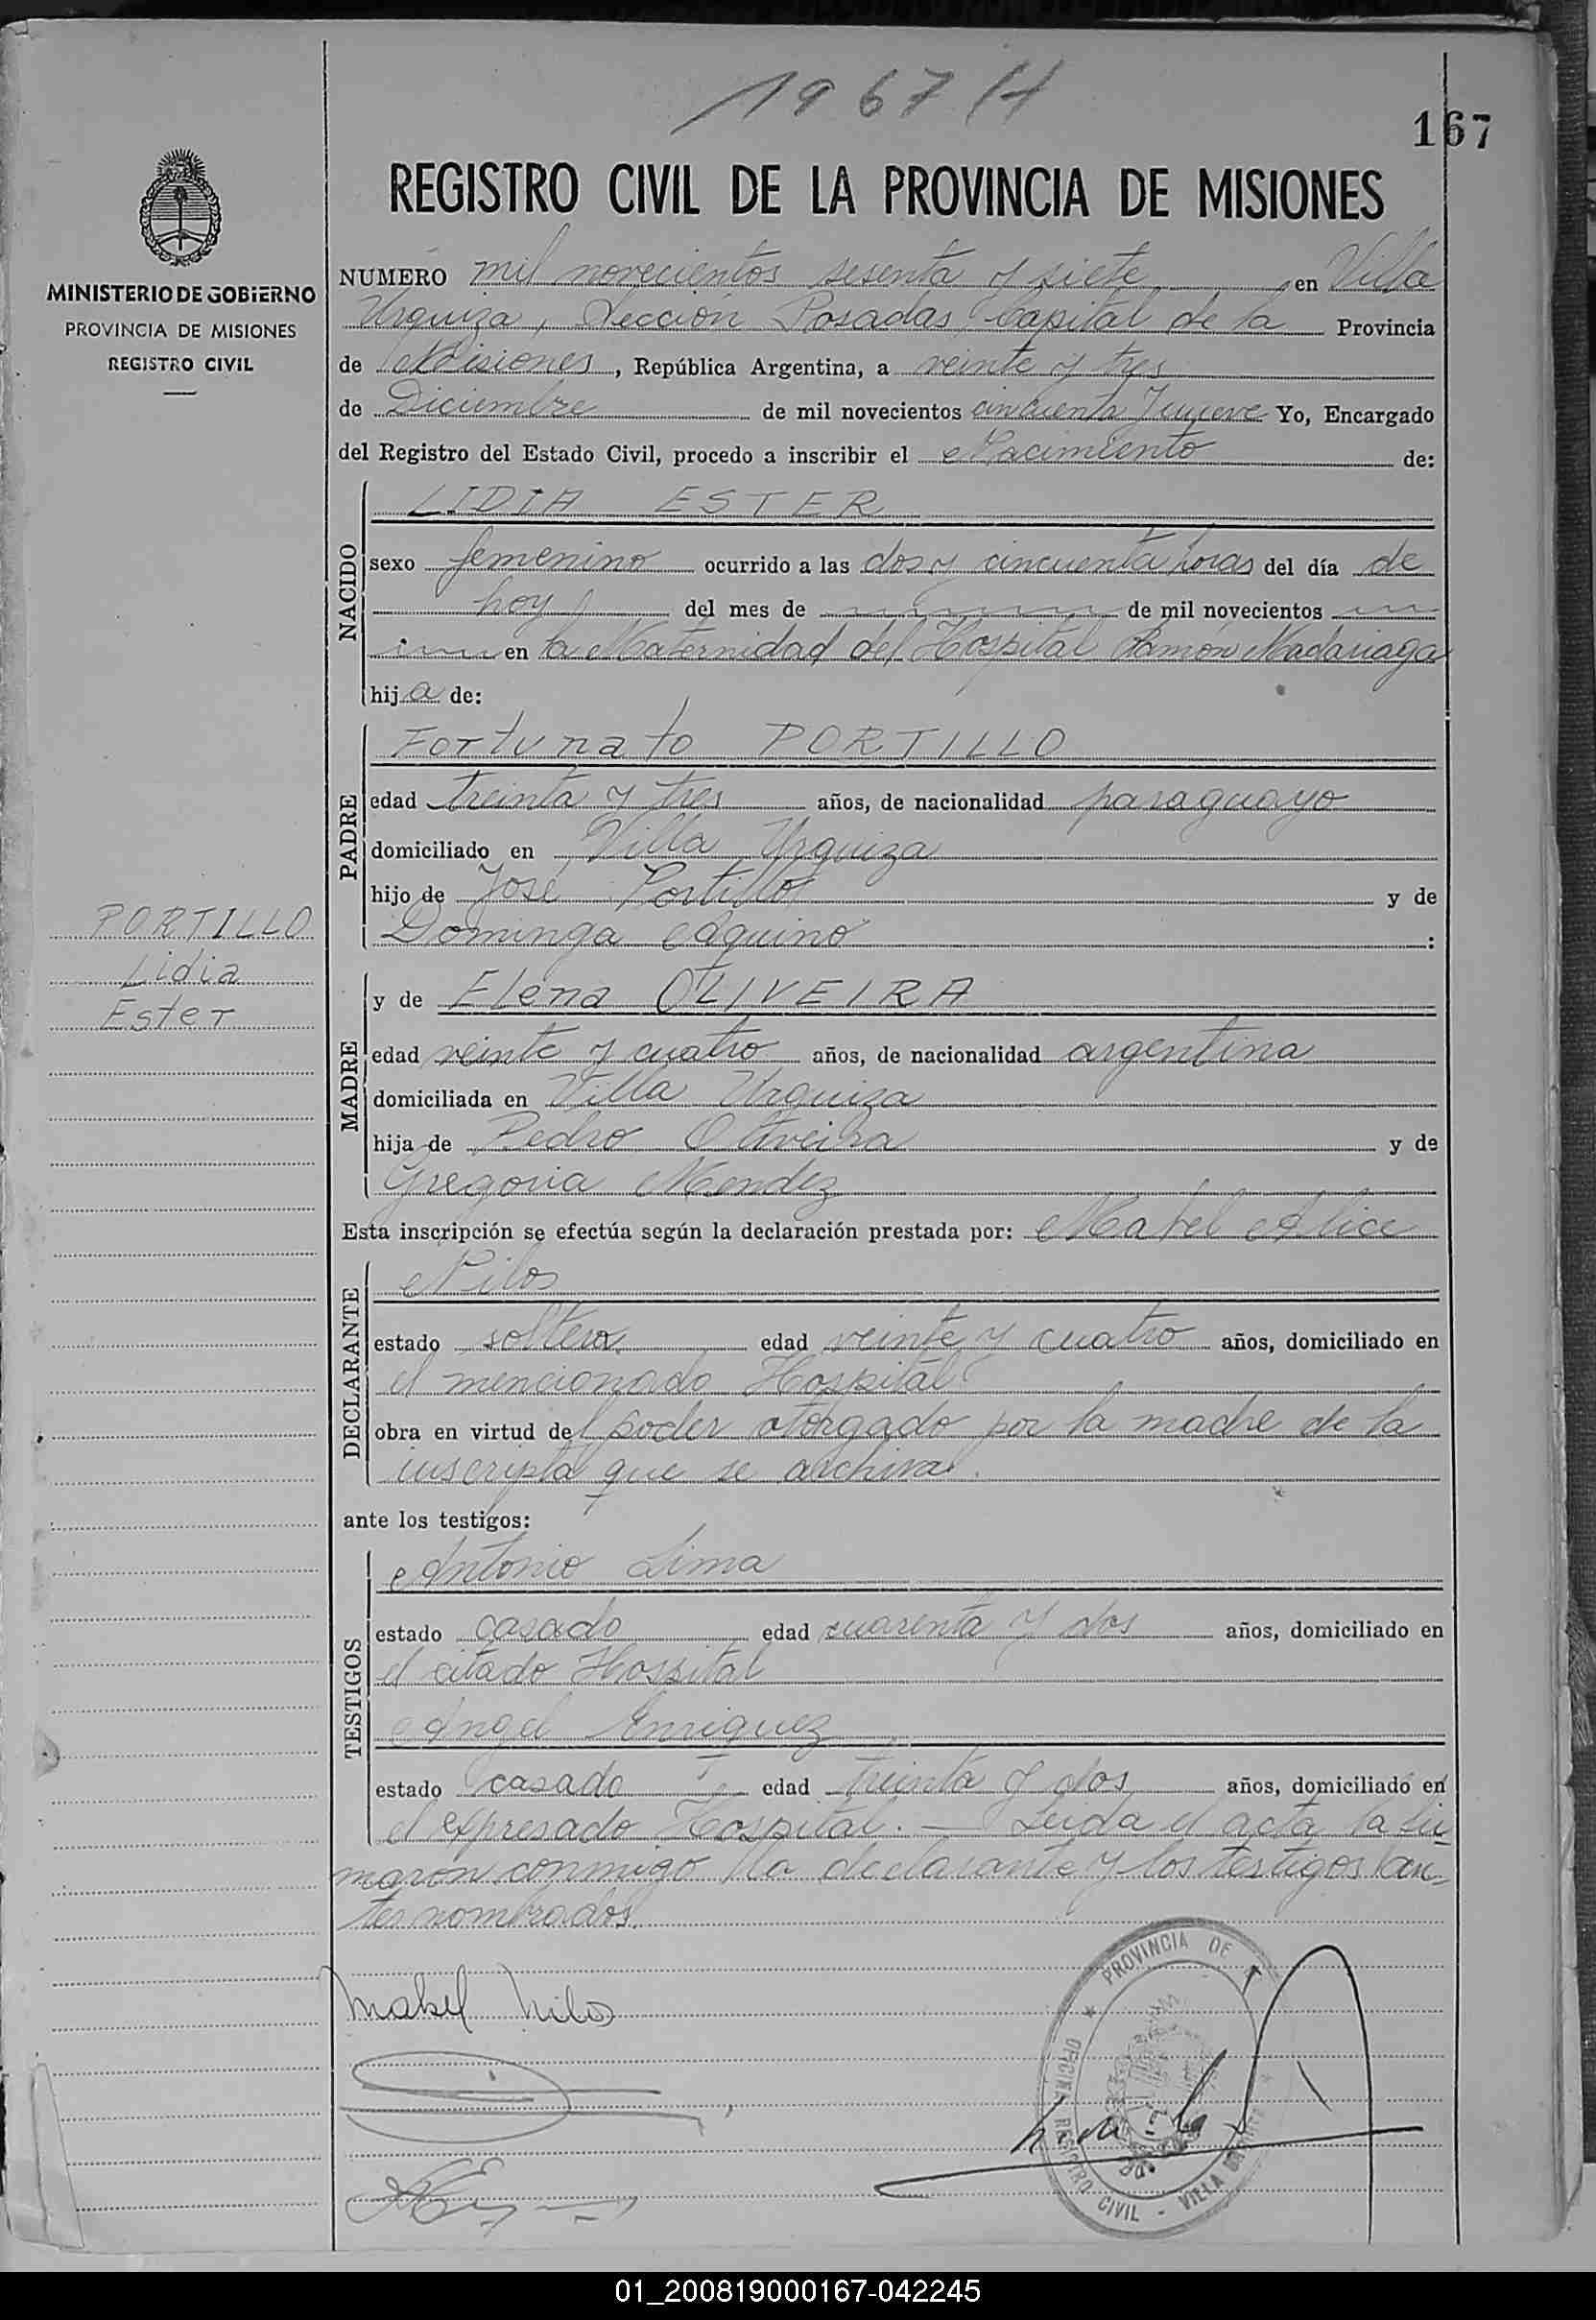 1967 H
167
REGISTRO CIVIL DE LA PROVINCIA DE MISIONES
MINISTERIO DE GOBIERNO
PROVINCIA DE MISIONES
REGISTRO CIVIL
NUMERO mil novecientos sesenta y siete en Villa
Urquiza, Sección Posadas Capital de la Provincia
de Misiones, República Argentina, a veinte y tres
de Diciembre de mil novecientos cincuenta y nueve Yo, Encargado
del Registro del Estado Civil, procedo a inscribir el Nacimiento de:
NACIDO
LIDIA ESTER
sexo femenino ocurrido a las dos y cincuenta horas del día de
hoy del mes de de mil novecientos
en la Maternidad del Hospital Ramón Madariaga
hija de:
PADRE
Fortunato PORTILLO
edad treinta y tres años, de nacionalidad paraguayo
domiciliado en Villa Urquiza
hijo de José Portillo y de
Dominga Aquino :
PORTILLO
Lidia
Ester
MADRE
y de Elena OLIVEIRA
edad veinte y cuatro años, de nacionalidad argentina
domiciliada en Villa Urquiza
hija de Pedro Oliveira y de
Gregoria Mendez
Esta inscripción se efectúa según la declaración prestada por: Mabel Alice
DECLARANTE
Nilos
estado soltera edad veinte y cuatro años, domiciliado en
el mencionado Hospital
obra en virtud del poder otorgado por la madre de la
inscripta que se archiva.
ante los testigos:
TESTIGOS
Antonio Lima
estado casado edad cuarenta y dos años, domiciliado en
el citado Hospital
Angel Enriquez
estado casado edad treinta y dos años, domiciliado en
el expresado Hospital. — Leida el acta, la fir-
maron conmigo la declarante y los testigos an-
tes nombrados.
Mabel Nilos
PROVINCIA DE
OFICINA REGISTRO CIVIL - VILLA
01_200819000167-042245